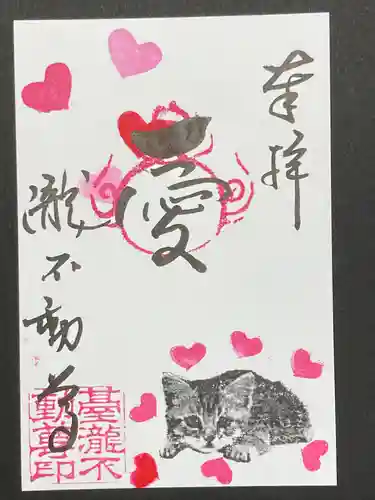 奉拝
愛
瀧不動尊
臺瀧不
動尊印